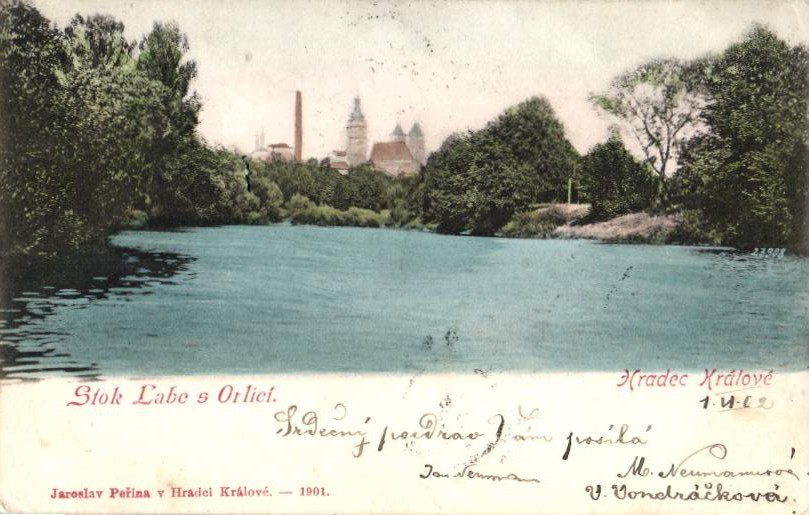 22898
Stok Labe s Orlicí.
Hradec Králové
1.VI.02
Srdečný pozdrav Vám posílá
Jan Neumann
M. Neumannová
V. Vondráčková.
Jaroslav Peřina v Hradci Králové. — 1901.